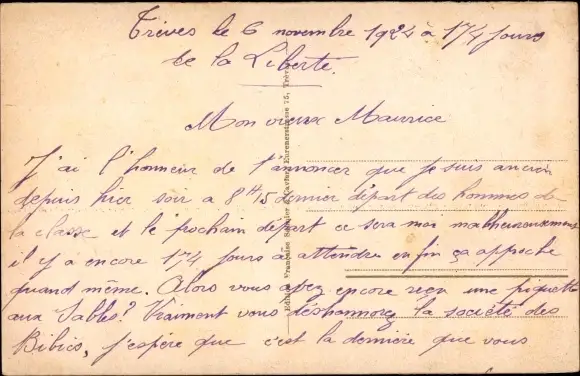 Trèves le 6 novembre 1924 à 174 jours
de la Liberté.
Mon vieux Maurice
J'ai l'honneur de t'annoncer que je suis ancien
depuis hier soir à 8H15 dernier départ des hommes de
la classe et le prochain départ ce sera moi malheureusement
il y a encore 174 jours à attendre enfin ça approche
quand même. Alors vous avez encore reçu une piquette
aux Sables? Vraiment vous déshonnorez la société des
Bibics, j'espère que c'est la dernière que vous
Française
75, Trèves